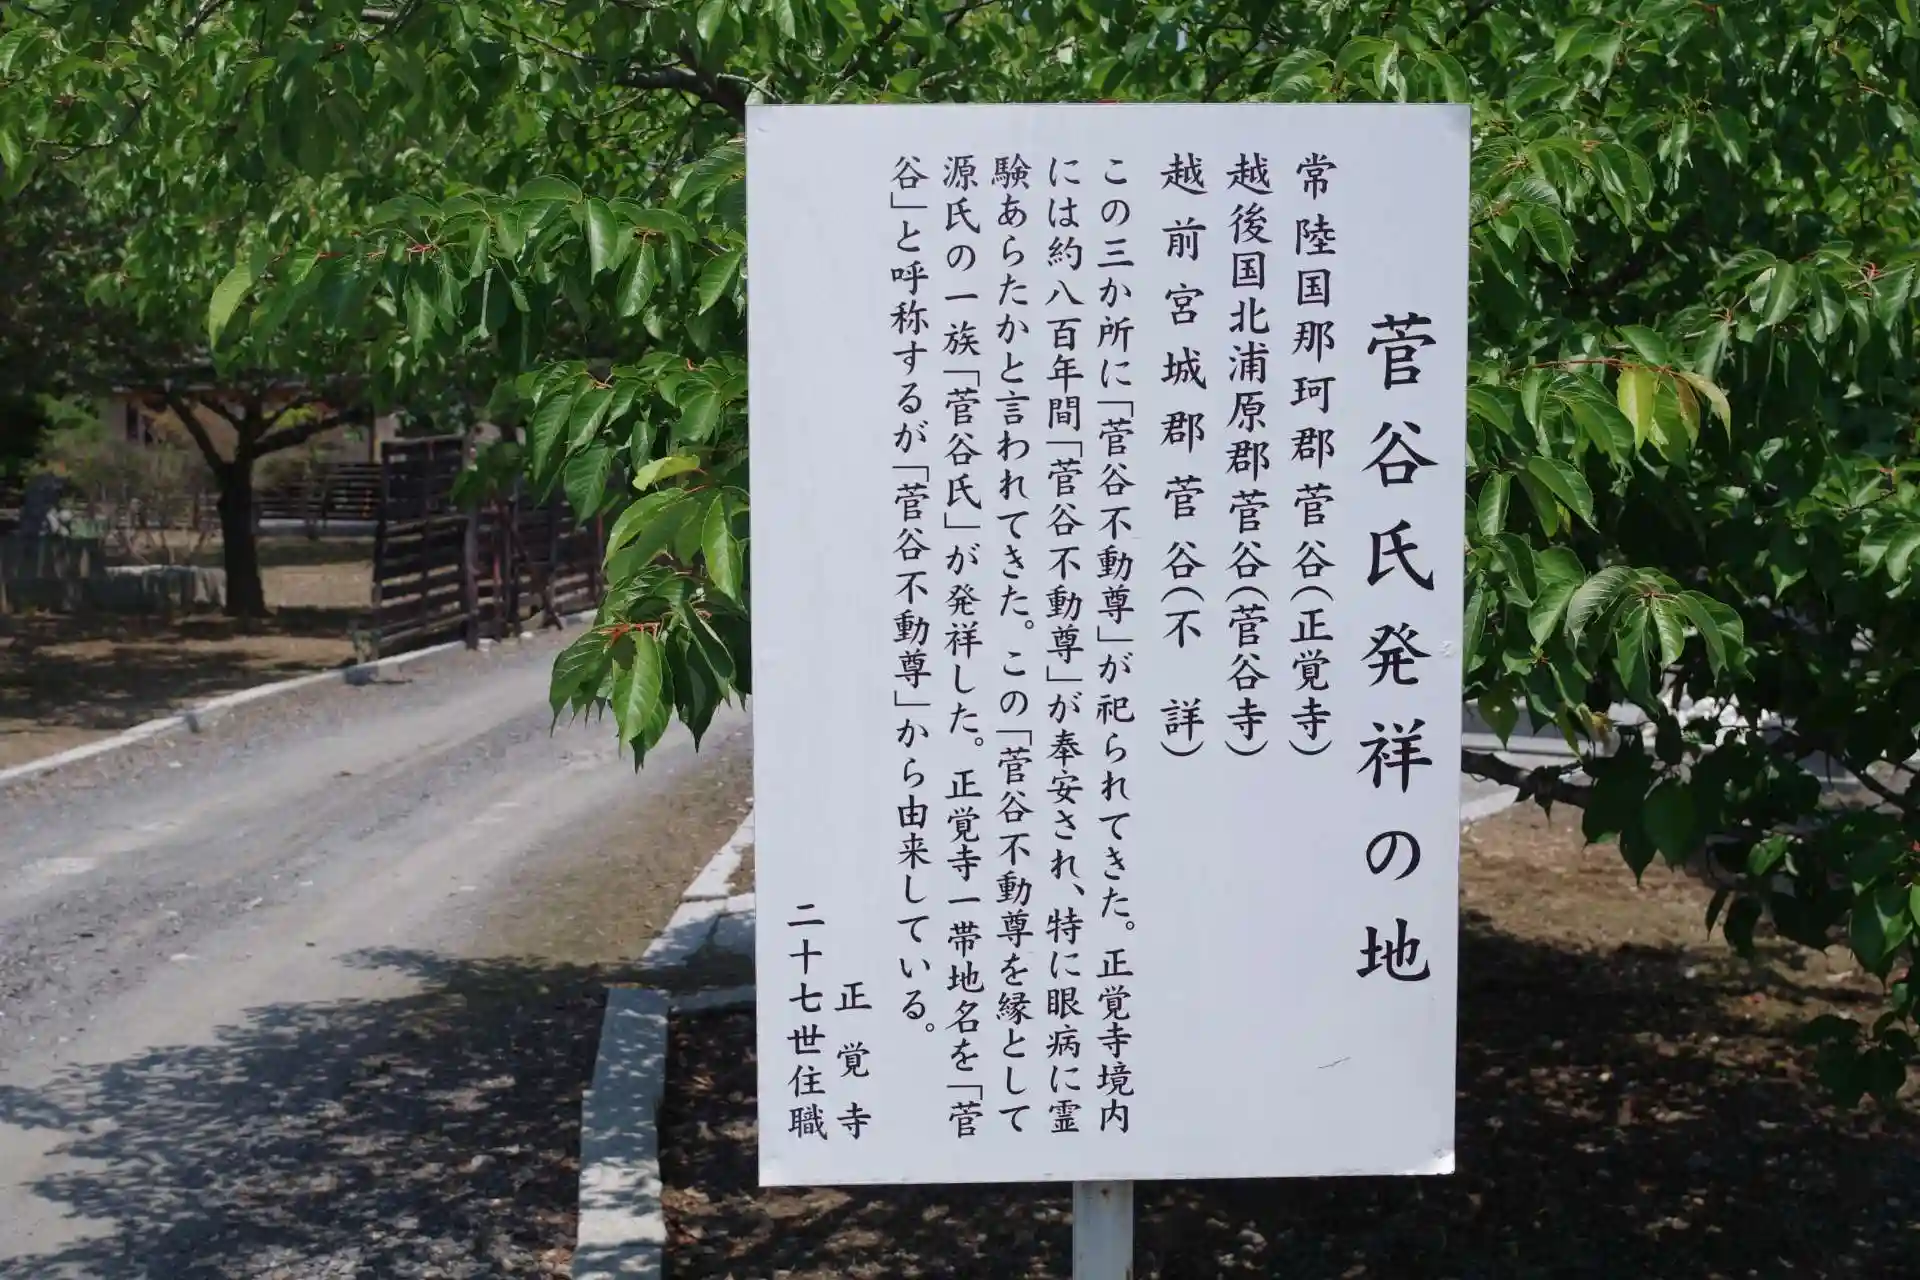 菅谷氏発祥の地
常陸国那珂郡菅谷(正覚寺)
越後国北浦原郡菅谷(菅谷寺)
越前宮城郡菅谷(不 詳)
この三か所に「菅谷不動尊」が祀られてきた。正覚寺境内
には約八百年間「菅谷不動尊」が奉安され、特に眼病に霊
験あらたかと言われてきた。この「菅谷不動尊を縁として
源氏の一族「菅谷氏」が発祥した。正覚寺一帯地名を「菅
谷」と呼称するが「菅谷不動尊」から由来している。
正覚寺
二十七世住職